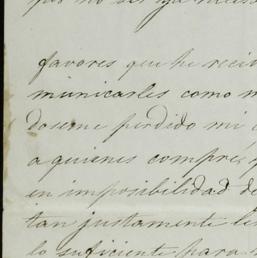 favores que he recib
municarles como m
doseme perdido mi
a quienes compré,
en imposibilidad de
tan justamente le
lo suficiente para